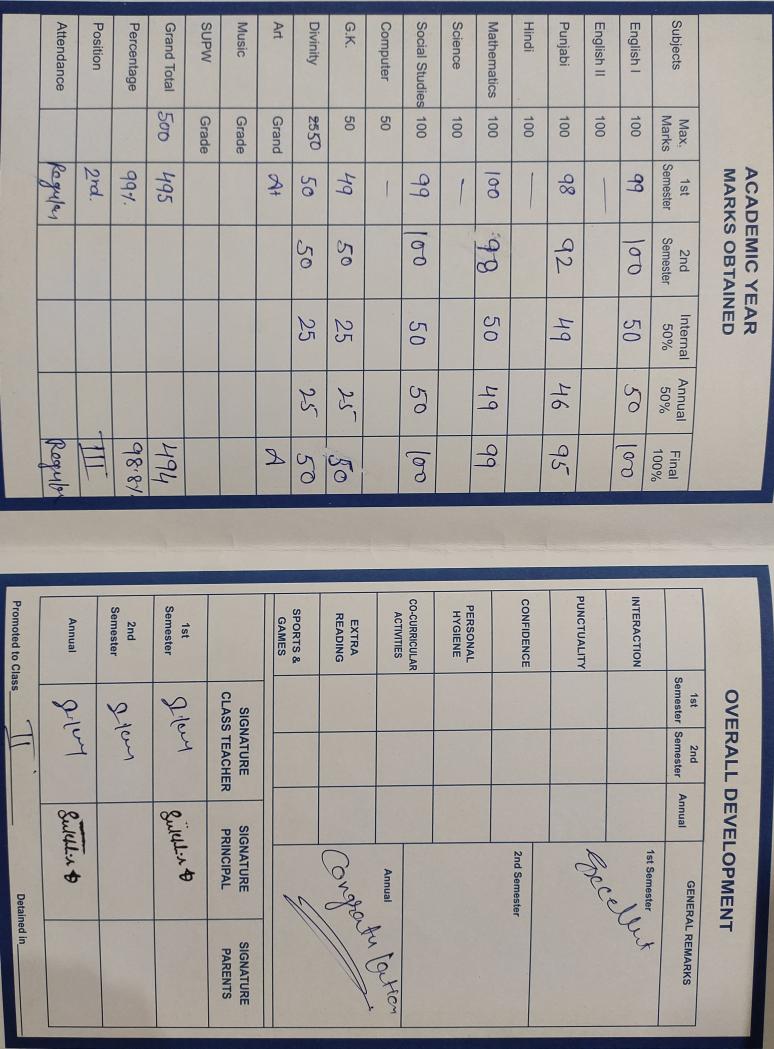 ACADEMIC YEAR
MARKS OBTAINED
Subjects Max. Marks 1st Semester 2nd Semester Internal 50% Annual 50% Final 100%
English I 100 99 100 50 50 100
English II 100 —
Punjabi 100 98 92 49 46 95
Hindi 100 —
Mathematics 100 100 98 50 49 99
Science 100 —
Social Studies 100 99 100 50 50 100
Computer 50 —
G.K. 50 49 50 25 25 50
Divinity 50 50 50 25 25 50
Art Grand A+ A
Music Grade
SUPW Grade
Grand Total 500 495 494
Percentage 99% 98.8%
Position 2nd. III
Attendance Regular Regular
OVERALL DEVELOPMENT
1st Semester 2nd Semester Annual GENERAL REMARKS
INTERACTION
PUNCTUALITY
CONFIDENCE
PERSONAL HYGIENE
CO-CURRICULAR ACTIVITIES
EXTRA READING
SPORTS & GAMES
1st Semester
Excellent
2nd Semester
Annual
Congratulation
SIGNATURE CLASS TEACHER SIGNATURE PRINCIPAL SIGNATURE PARENTS
1st Semester
2nd Semester
Annual
Promoted to Class II Detained in